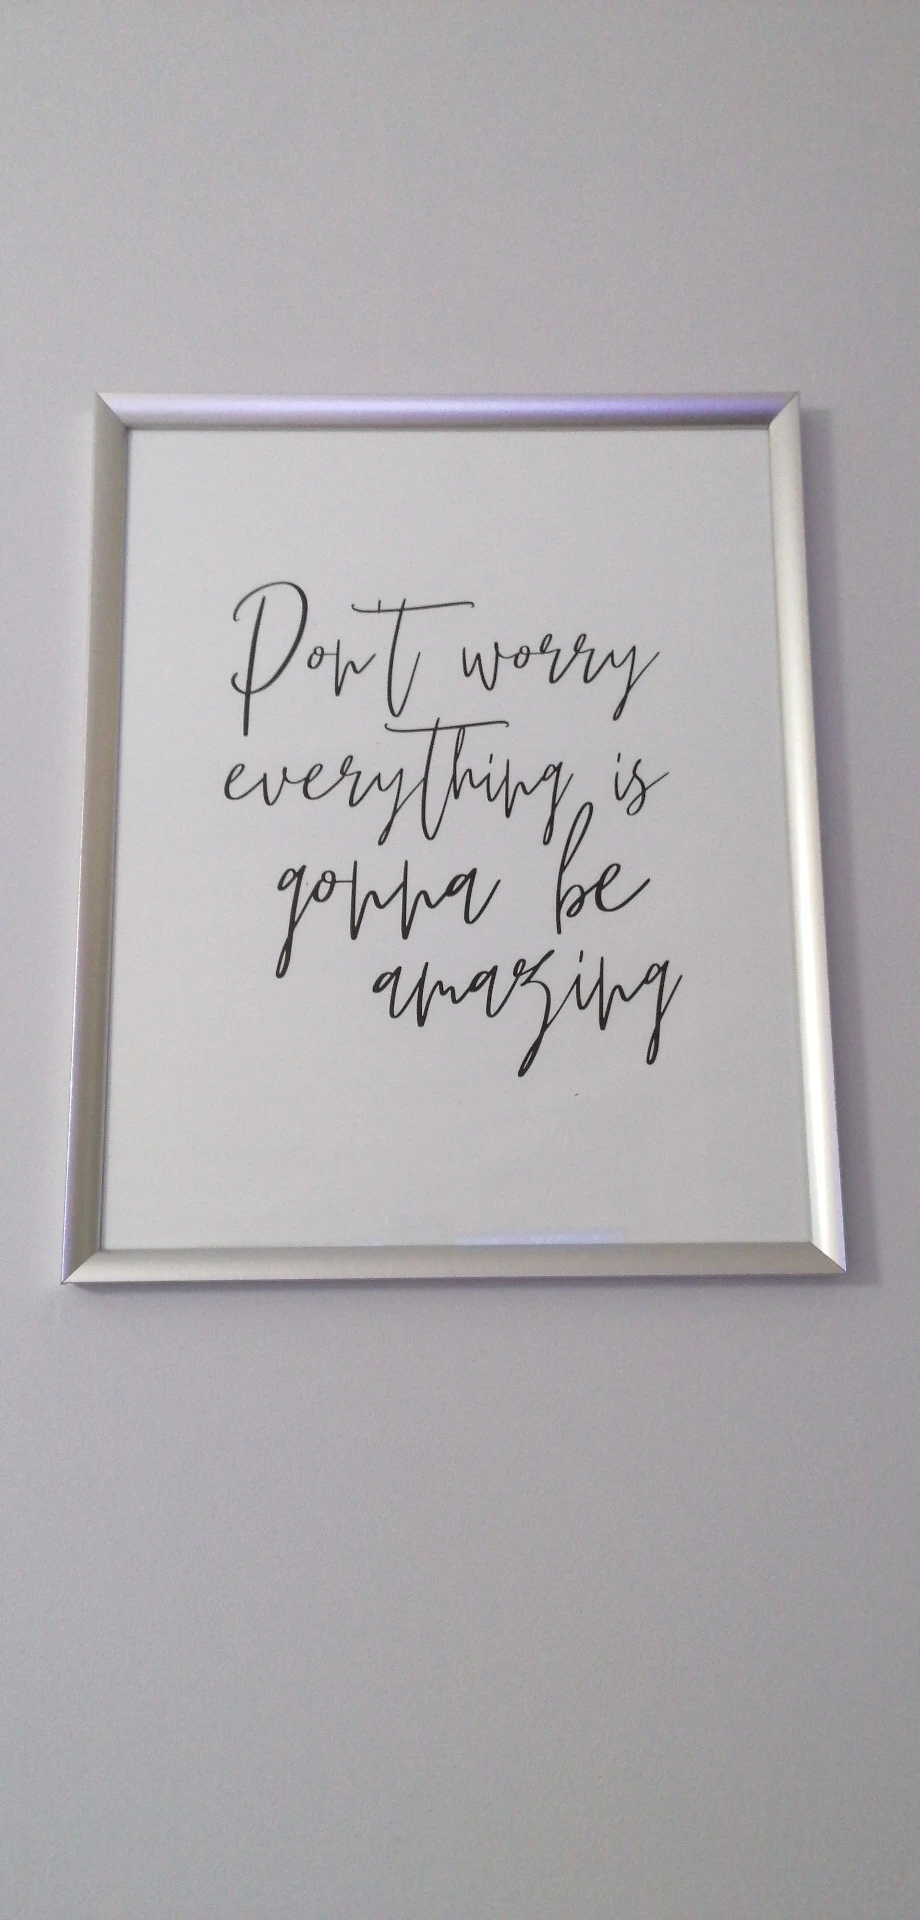 Don't worry
everything is
gonna be
amazing